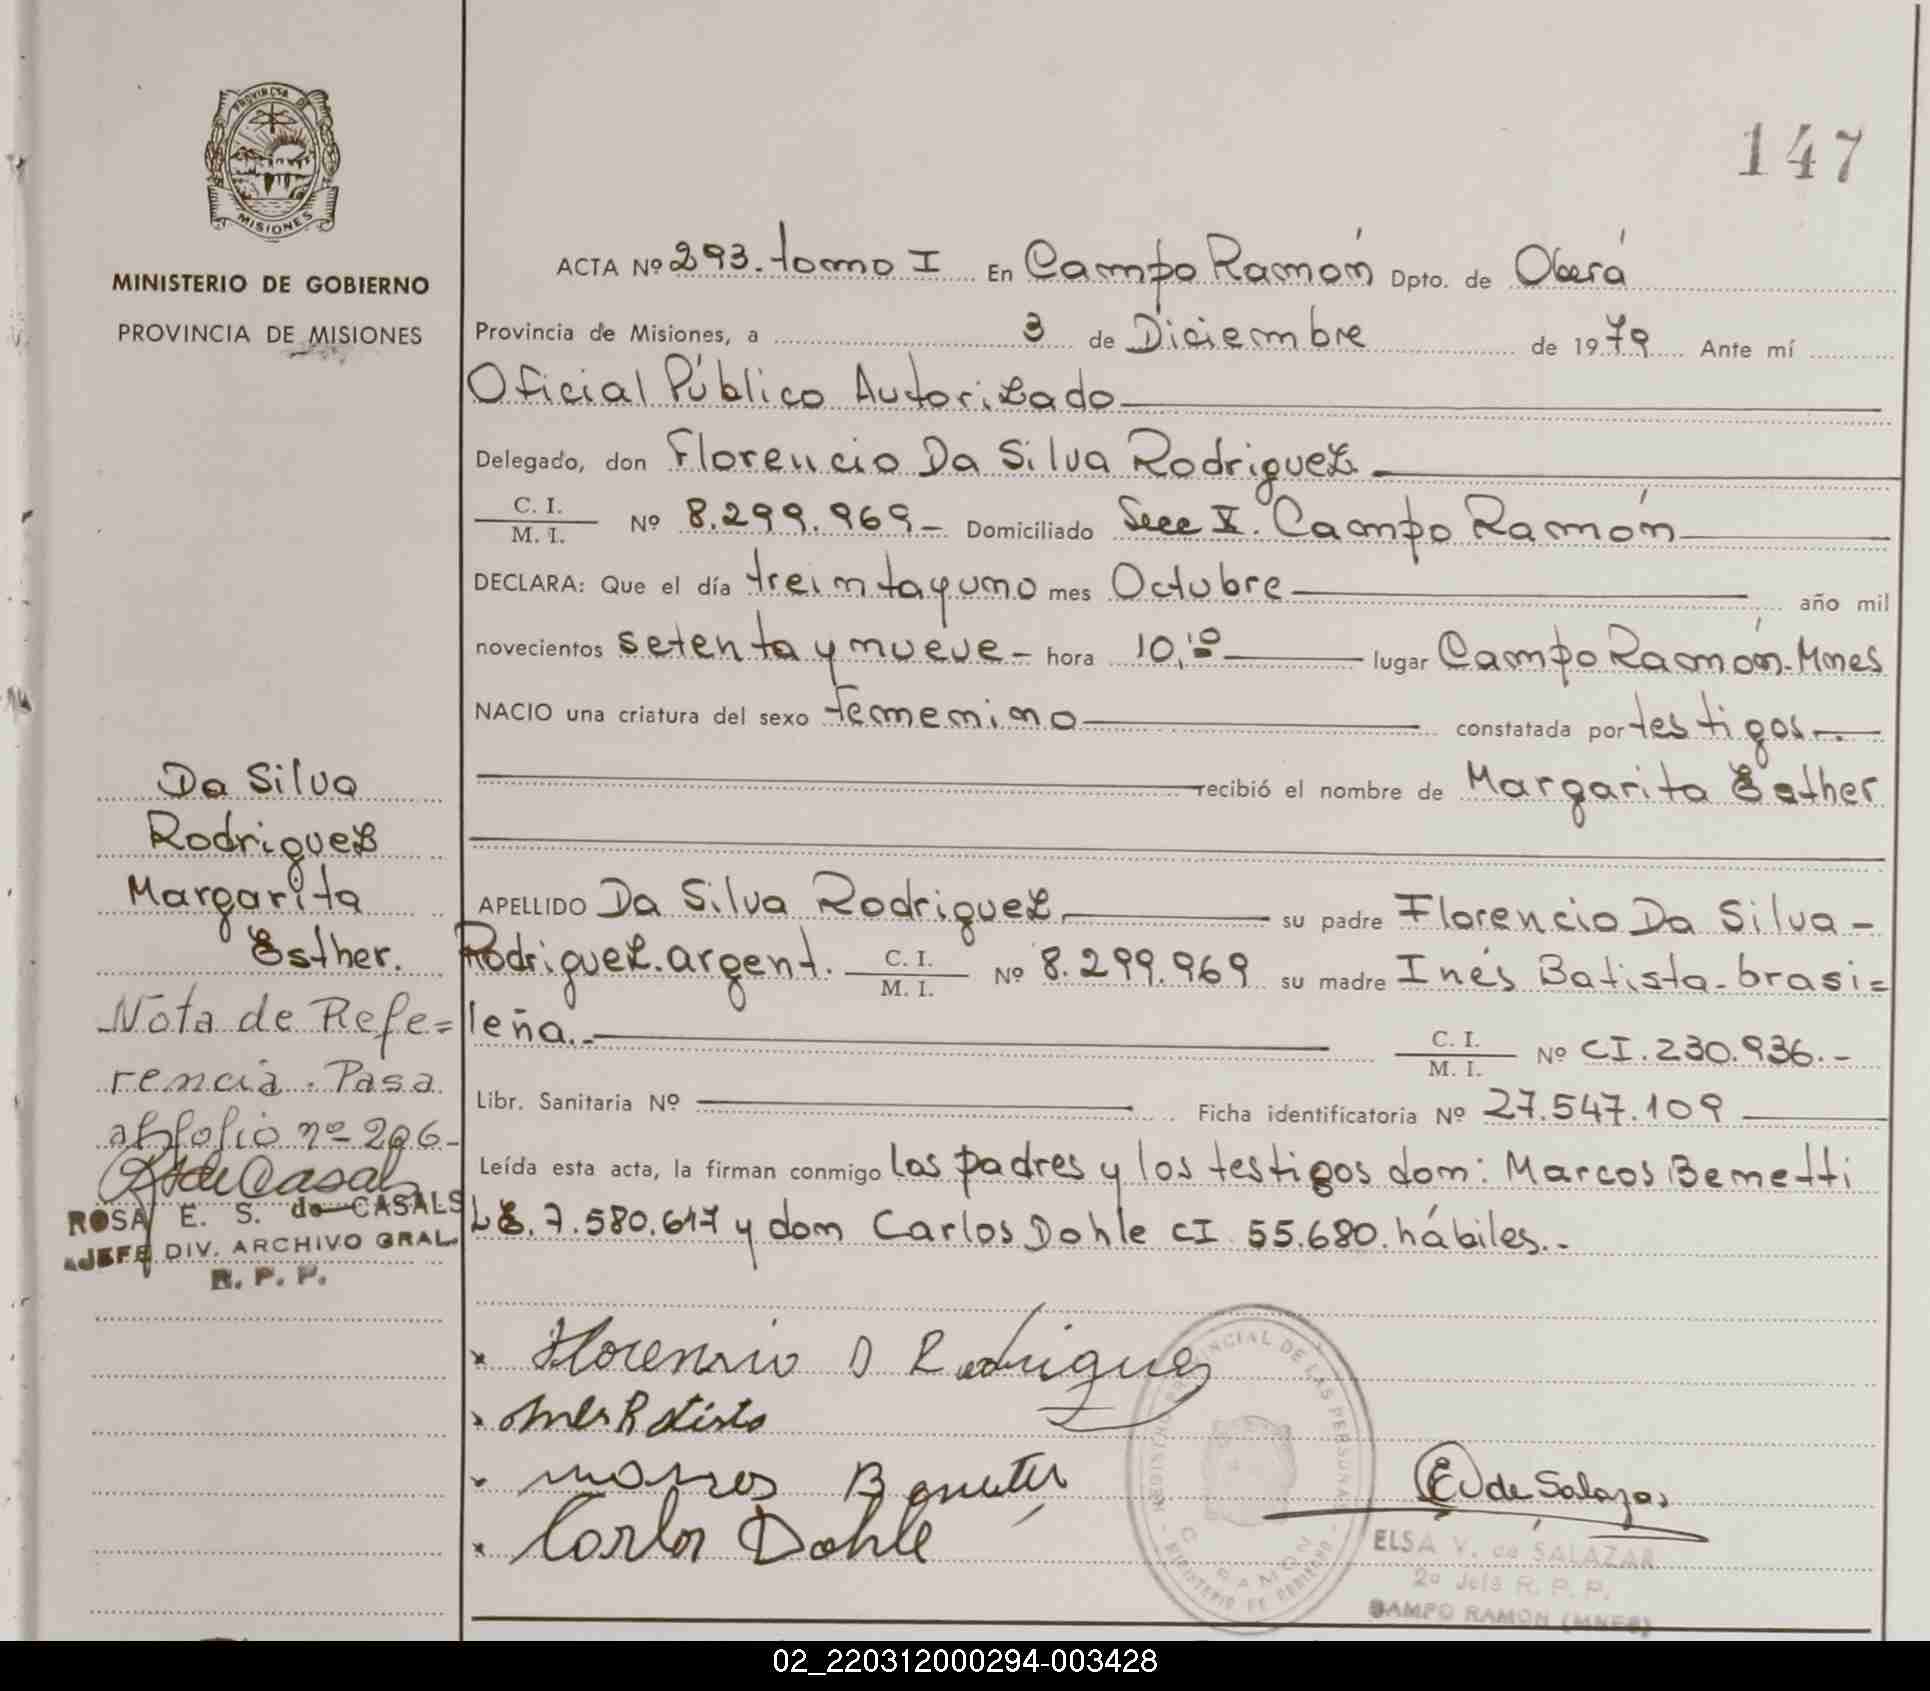 147
PROVINCIA DE
MISIONES
MINISTERIO DE GOBIERNO
PROVINCIA DE MISIONES
ACTA Nº 293. tomo I En Campo Ramón Dpto. de Oberá
Provincia de Misiones, a 3 de Diciembre de 1979 Ante mí
Oficial Público Autorizado
Delegado, don Florencio Da Silva Rodriguez
C. I.
M. I. Nº 8.299.969- Domiciliado Secc X. Campo Ramón
DECLARA: Que el día treinta y uno mes Octubre año mil
novecientos setenta y nueve- hora 10,10 lugar Campo Ramón. Mnes
NACIO una criatura del sexo femenino constatada por testigos.-
recibió el nombre de Margarita Esther
APELLIDO Da Silva Rodriguez su padre Florencio Da Silva-
Rodriguez. argent. C. I. M. I. Nº 8.299.969 su madre Inés Batista. brasi=
leña.- C. I. M. I. Nº CI. 230.936.-
Libr. Sanitaria Nº Ficha identificatoria Nº 27.547.109
Leída esta acta, la firman conmigo los padres y los testigos don: Marcos Benetti
LE. 7.580.617 y don Carlos Dohle CI 55.680. hábiles.-
Da Silva
Rodriguez
Margarita
Esther.
Nota de Refe=
rencia. Pasa
al folio nº 206-
RS de Casals
ROSA E. S. de CASALS
JEFE DIV. ARCHIVO GRAL.
R. P. P.
x Florencio D Rodriguez
x Ines Batista
x marcos Benetti
x Carlos Dohle
REGISTRO PROVINCIAL DE LAS PERSONAS
C. RAMON
MINISTERIO DE GOBIERNO
E V de Salazar
ELSA V. de SALAZAR
2a Jefe R. P. P.
CAMPO RAMON (MNES)
02_220312000294-003428